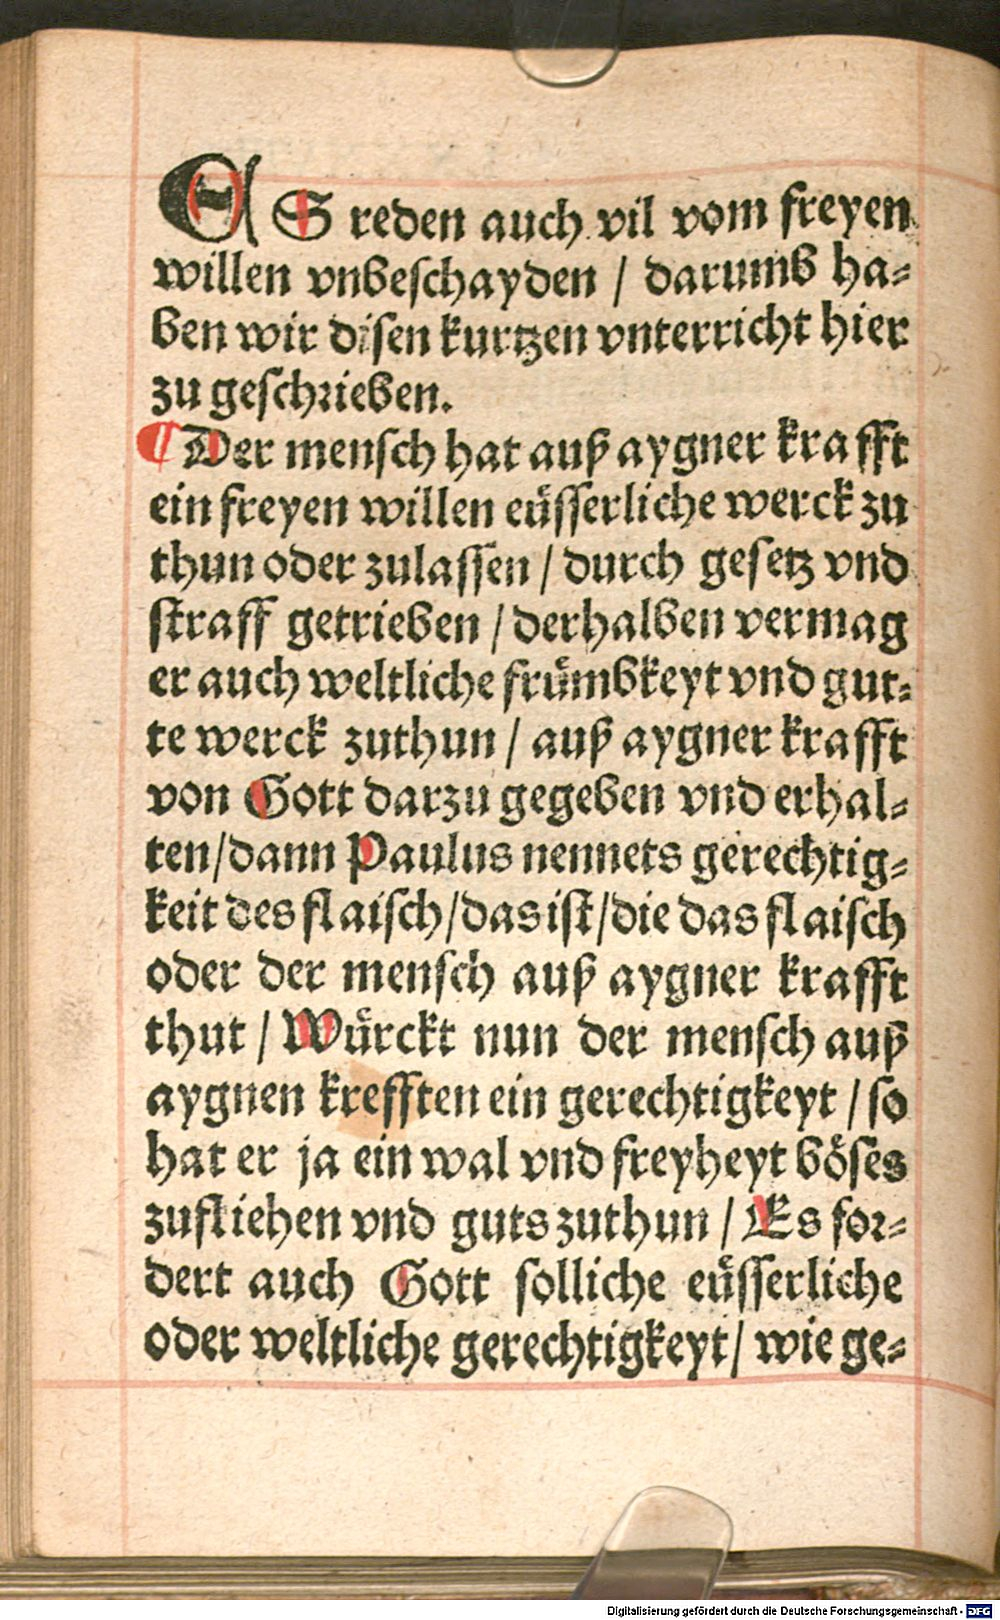 ES reden auch vil vom freyen
willen vnbeschayden / darumb ha⸗
ben wir disen kurtzen vnterricht hier
zu geschrieben.
¶ Der mensch hat auß aygner krafft
ein freyen willen eüsserliche werck zu
thun oder zulassen / durch gesetz vnd
straff getrieben / derhalben vermag
er auch weltliche frümbkeyt vnd gut⸗
te werck zuthun / auß aygner krafft
von Gott darzu gegeben vnd erhal⸗
ten / dann Paulus nennets gerechtig⸗
keit des flaisch / das ist / die das flaisch
oder der mensch auß aygner krafft
thut / Würckt nun der mensch auß
aygnen krefften ein gerechtigkeyt / so
hat er ja ein wal vnd freyheyt böses
zufliehen vnd guts zuthun / Es for⸗
dert auch Gott solliche eüsserliche
oder weltliche gerechtigkeyt / wie ge⸗
Digitalisierung gefördert durch die Deutsche Forschungsgemeinschaft - DFG